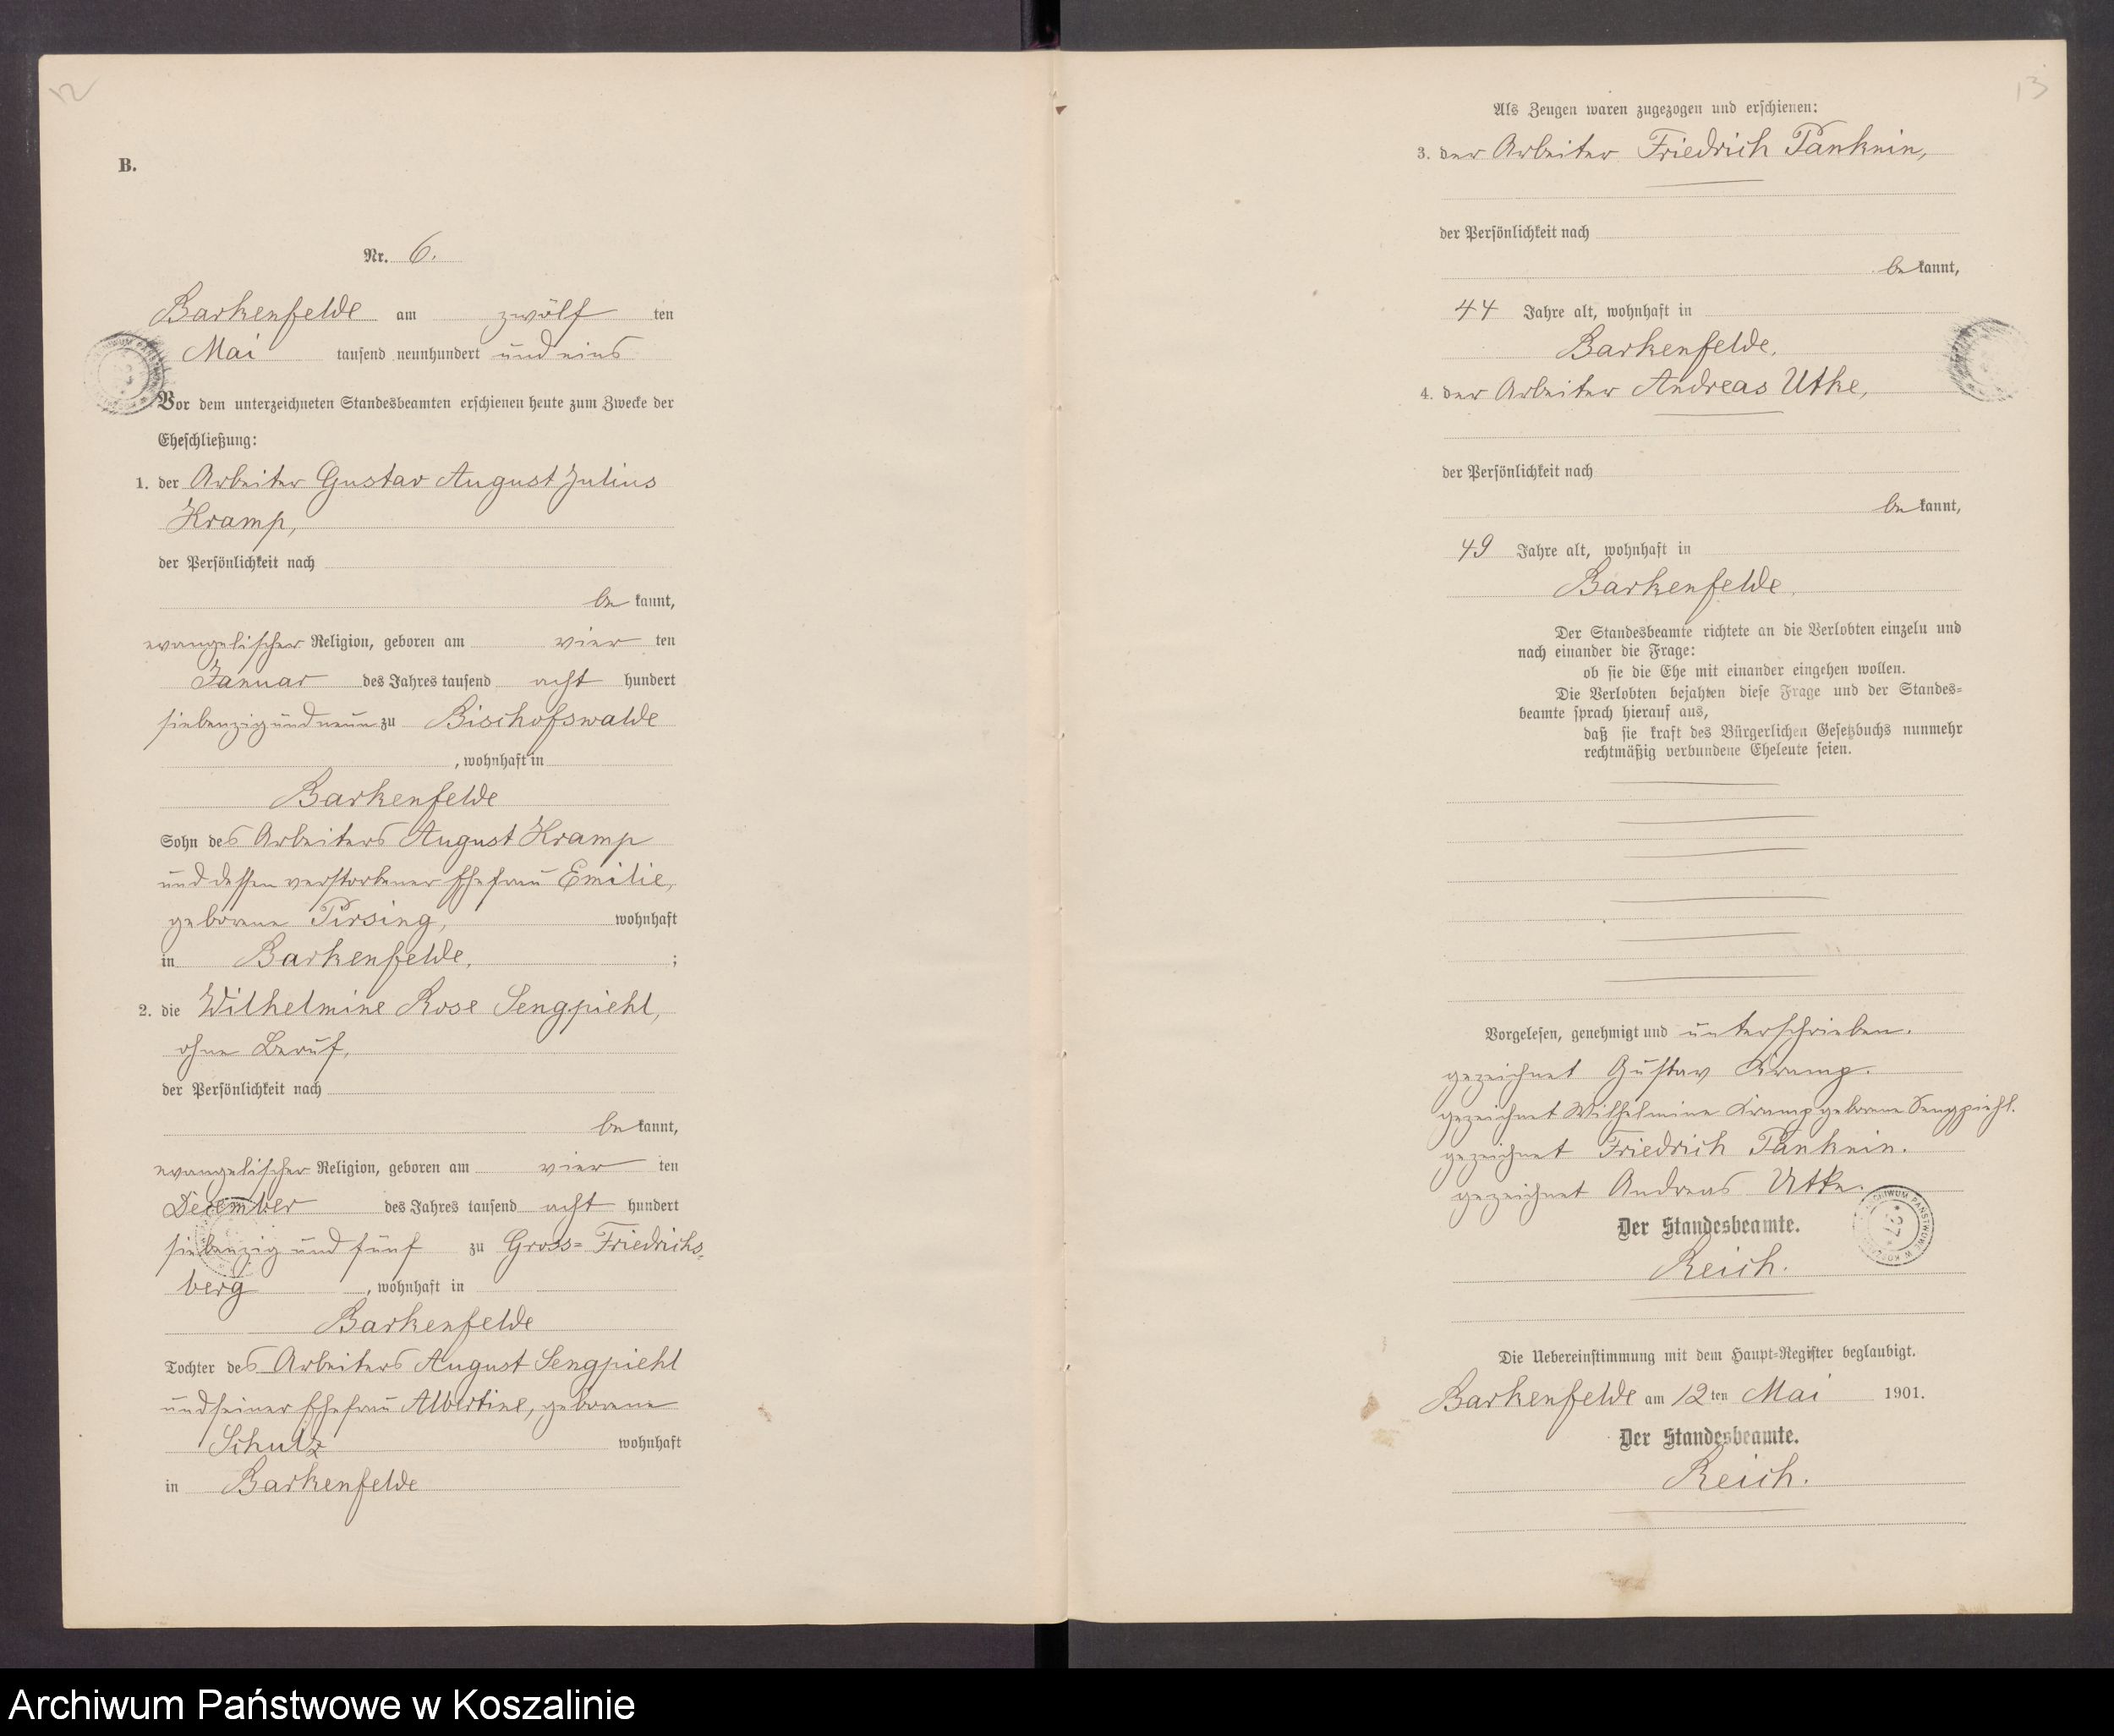 12
B.
Nr. 6.
Barkenfelde am zwölf ten
Mai tausend neunhundert und eins
Vor dem unterzeichneten Standesbeamten erschienen heute zum Zwecke der
Eheschließung:
1. der Arbeiter Gustav August Julius
Kramp,
der Persönlichkeit nach
be kannt,
evangelischer Religion, geboren am vier ten
Januar des Jahres tausend acht hundert
siebenzig und neun zu Bischofswalde
, wohnhaft in
Barkenfelde
Sohn des Arbeiters August Kramp
und dessen verstorbener Ehefrau Emilie,
geborene Pirsing, wohnhaft
in Barkenfelde. ;
2. die Wilhelmine Rose Sengpiehl,
ohne Beruf,
der Persönlichkeit nach
be kannt,
evangelischer Religion, geboren am vier ten
Dezember des Jahres tausend acht hundert
siebenzig und fünf zu Gross-Friedrichs-
berg , wohnhaft in
Barkenfelde
Tochter des Arbeiters August Sengpiehl
und seiner Ehefrau Albertine, geborene
Schulz wohnhaft
in Barkenfelde
13
Als Zeugen waren zugezogen und erschienen:
3. der Arbeiter Friedrich Panknin,
der Persönlichkeit nach
be kannt,
44 Jahre alt, wohnhaft in
Barkenfelde.
4. der Arbeiter Andreas Utke,
der Persönlichkeit nach
be kannt,
49 Jahre alt, wohnhaft in
Barkenfelde.
Der Standesbeamte richtete an die Verlobten einzeln und
nach einander die Frage:
ob sie die Ehe mit einander eingehen wollen.
Die Verlobten bejahten diese Frage und der Standes-
beamte sprach hierauf aus,
daß sie kraft des Bürgerlichen Gesetzbuchs nunmehr
rechtmäßig verbundene Eheleute seien.
Vorgelesen, genehmigt und unterschrieben.
gezeichnet Gustav Kramp.
gezeichnet Wilhelmine Kramp geborene Sengpiehl.
gezeichnet Friedrich Panknin.
gezeichnet Andreas Utke.
Der Standesbeamte.
Reich.
Die Uebereinstimmung mit dem Haupt-Register beglaubigt.
Barkenfelde am 12 ten Mai 1901.
Der Standesbeamte.
Reich.
Archiwum Państwowe w Koszalinie